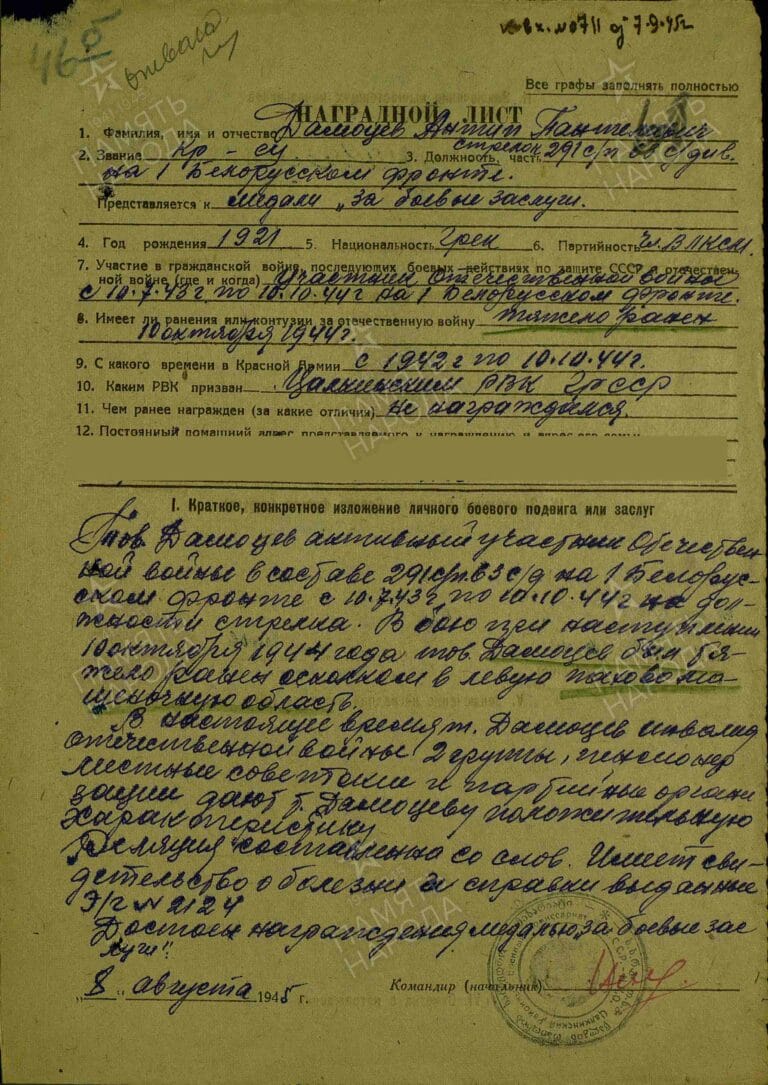 вх. № 0711 от 7.9.45г
46б
отвага
Все графы заполнять полностью
НАГРАДНОЙ ЛИСТ
1. Фамилия, имя и отчество Дамоцев Антип Пантелевич
2. Звание кр-ец 3. Должность, часть стрелок 291 с/п 63 с/див.
на 1 Белорусском фронте.
Представляется к медали „за боевые заслуги.
4. Год рождения 1921 5. Национальность Грек 6. Партийность чл. ВЛКСМ.
7. Участие в гражданской войне, последующих боевых действиях по защите СССР и отечествен-
ной войне (где и когда) участник Отечественной войны
с 10.7.43г по 10.10.44г на 1 Белорусском фронте.
8. Имеет ли ранения или контузии за отечественную войну тяжело ранен
10 октября 1944г.
9. С какого времени в Красной Армии с 1942г по 10.10.44г.
10. Каким РВК призван Цалкинским РВК ГрССР
11. Чем ранее награжден (за какие отличия) не награждался.
12. Постоянный домашний адрес представляемого к награждению и адрес его семьи
I. Краткое, конкретное изложение личного боевого подвига или заслуг
Тов. Дамоцев активный участник Отечествен-
ной войны в составе 291 с/п 63 с/д на 1 Белорус-
ском фронте с 10.7.43г по 10.10.44г на дол-
жности стрелка. В бою при наступлении
10 октября 1944 года тов. Дамоцев был тя-
жело ранен осколком в левую пахово мо-
шоночную область.
В настоящее время т. Дамоцев инвалид
отечественной войны 2 группы, пенсионер
местные советские и партийные органи
зации дают т. Дамоцеву положительную
характеристику
Реляция составленна со слов. Имеет сви-
детельство о болезни и справки выданные
Э/г № 2124
Достоин награждения медалью „за боевые зас
луги".
„8" августа 1945 г.
Командир (начальник)
ПАМЯТЬ НАРОДА